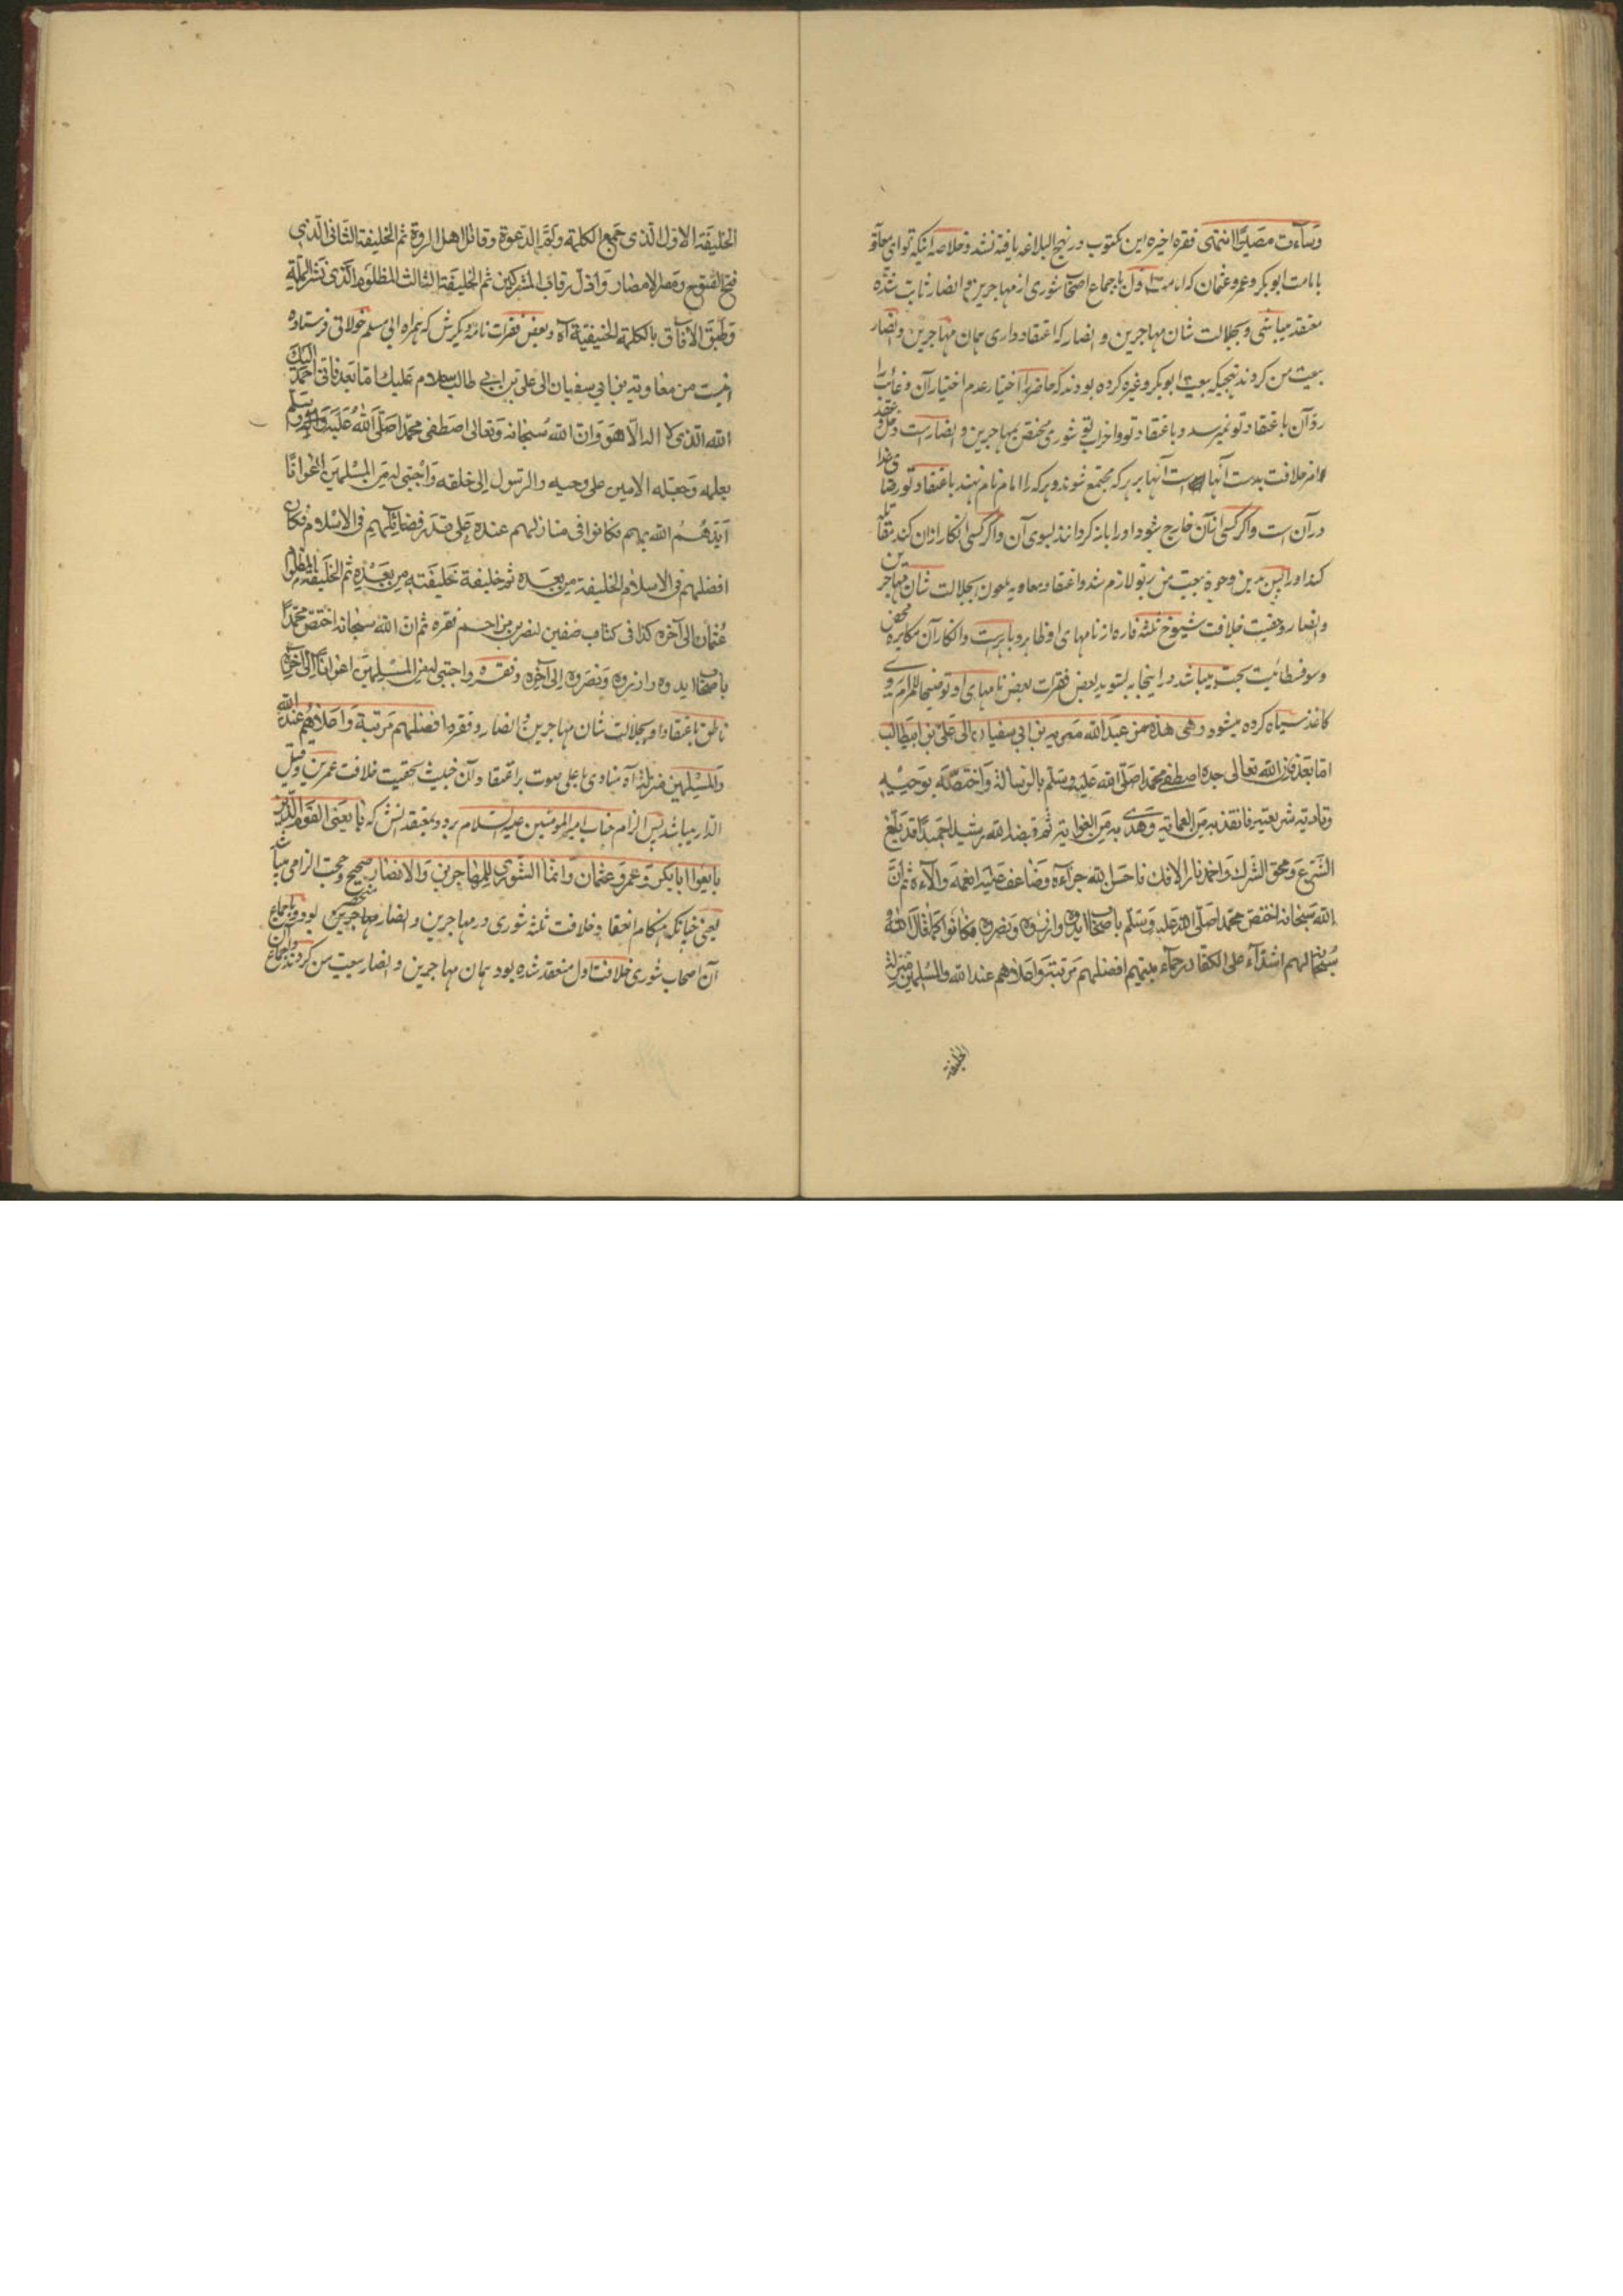 وساءت مصیرا انتهی فقره اخیره این مکتوب در نهج البلاغه یافته نشد و خلاصه اینکه تو ای معاویه
بامامت ابوبکر و عمر و عثمان که امامت اول باجماع اصحاب شوری از مهاجرین و انصار ثابت شده
معتقد میباشی و بجلالت شان مهاجرین و انصار که اعتقاد داری همان مهاجرین و انصار
بیعت من کردند بنهجیکه بیعت ابوبکر و غیره کرده بودند که حاضر را اختیار عدم اختیار آن و غائب را
رد آن باعتقاد تو نمیرسد و باعتقاد تو شوری مختص بمهاجرین و انصار است و حل و عقد
امر خلافت بدست آنها است آنها بر هر که مجتمع شوند و هر که را امام نام نهند باعتقاد تو رضای خدا
در آن است و اگر کسی ازان خارج شود او را بازگردانند بسوی آن و اگر کسی انکار ازان کند مقاتله
کنند او را پس بدین وجوه بیعت من بر تو لازم شد و اعتقاد معاویه ملعون بجلالت شان مهاجرین
و انصار و حقیت خلافت شیوخ ثلثه از نامهای او ظاهر و باهر است و انکار آن مکابره محض
و سوفسطائیت بحت میباشد در اینجا به تسوید بعض فقرات بعض نامهای او توضیحا للمرام روی
کاغذ سیاه کرده میشود و هی هذه من عبد الله معویه بن ابی سفیان الی علی بن ابیطالب
اما بعد فان الله تعالی جده اصطفی محمدا صلی الله علیه و سلم بالرسالة و اختصه بوحیه
و تادیة شریعته فانقذ به من العمایة و هدی به من الغوایة ثم قبضه الیه رشیدا حمیدا قد بلغ
الشرع و محق الشرک و اخمد نار الافک فاحسن الله جزاءه و ضاعف علیه انعمه و آلاءه ثم ان
الله سبحانه اختص محمدا صلی الله علیه و سلم باصحاب ایدوه و ازروه و نصروه فکانوا کما قال الله
سبحانه لهم اشداء علی الکفار رحماء بینهم افضلهم مرتبة و اعلاهم عند الله و المسلمین منزلة
الخلیفة
الخلیفة الاول الذی جمع الکلمة و لم الدعوة و قاتل اهل الردة ثم الخلیفة الثانی الذی
فتح الفتوح و مصر الامصار و اذل رقاب المشرکین ثم الخلیفة الثالث المظلوم الذی نشر الملة
و طبق الافاق بالکلمة الحنیفیة آه و بعض فقرات نامه دیگرش که همراه ابی مسلم خولانی فرستاده
اینست من معاویة بن ابی سفیان الی علی بن ابی طالب سلام علیک اما بعد فانی احمد الیک
الله الذی لا اله الا هو و ان الله سبحانه و تعالی اصطفی محمدا صلی الله علیه و آله و سلم
بعلمه و جعله الامین علی وحیه و الرسول الی خلقه و اجتبی له من المسلمین اعوانا
ایدهم الله بهم فکانوا فی منازلهم عنده علی قدر فضائلهم فی الاسلام فکان
افضلهم فی الاسلام الخلیفة من بعده ثم خلیفة خلیفته من بعده ثم الخلیفة المظلوم
عثمان الی آخره کذا فی کتاب صفین لنصر بن مزاحم فقره ثم ان الله سبحانه اختص محمدا
باصحاب ایدوه و ازروه و نصروه الی آخره و فقره و اجتبی له من المسلمین اعوانا الی آخره
ناطق باعتقاد او بجلالت شان مهاجرین و انصار و فقره افضلهم مرتبة و اعلاهم عند الله
و المسلمین منزلة آه منادی باعلی صوت بر اعتقاد آن خبیث بحقیت خلافت عمرین و قتیل
الدار میباشد پس الزام جناب امیر المومنین علیه السلام برو و بمعتقدنش که بایعنی القوم الذین
بایعوا ابا بکر و عمر و عثمان و انما الشوری للمهاجرین و الانصار صحیح و حجت الزامی میباشد
یعنی چنانکه هنگام انعقاد خلافت ثلثه شوری در مهاجرین و انصار منحصر بود و باجماع
آن اصحاب شوری خلافت اول منعقد شده بود همان مهاجرین و انصار بیعت من کردند و اجماع آن